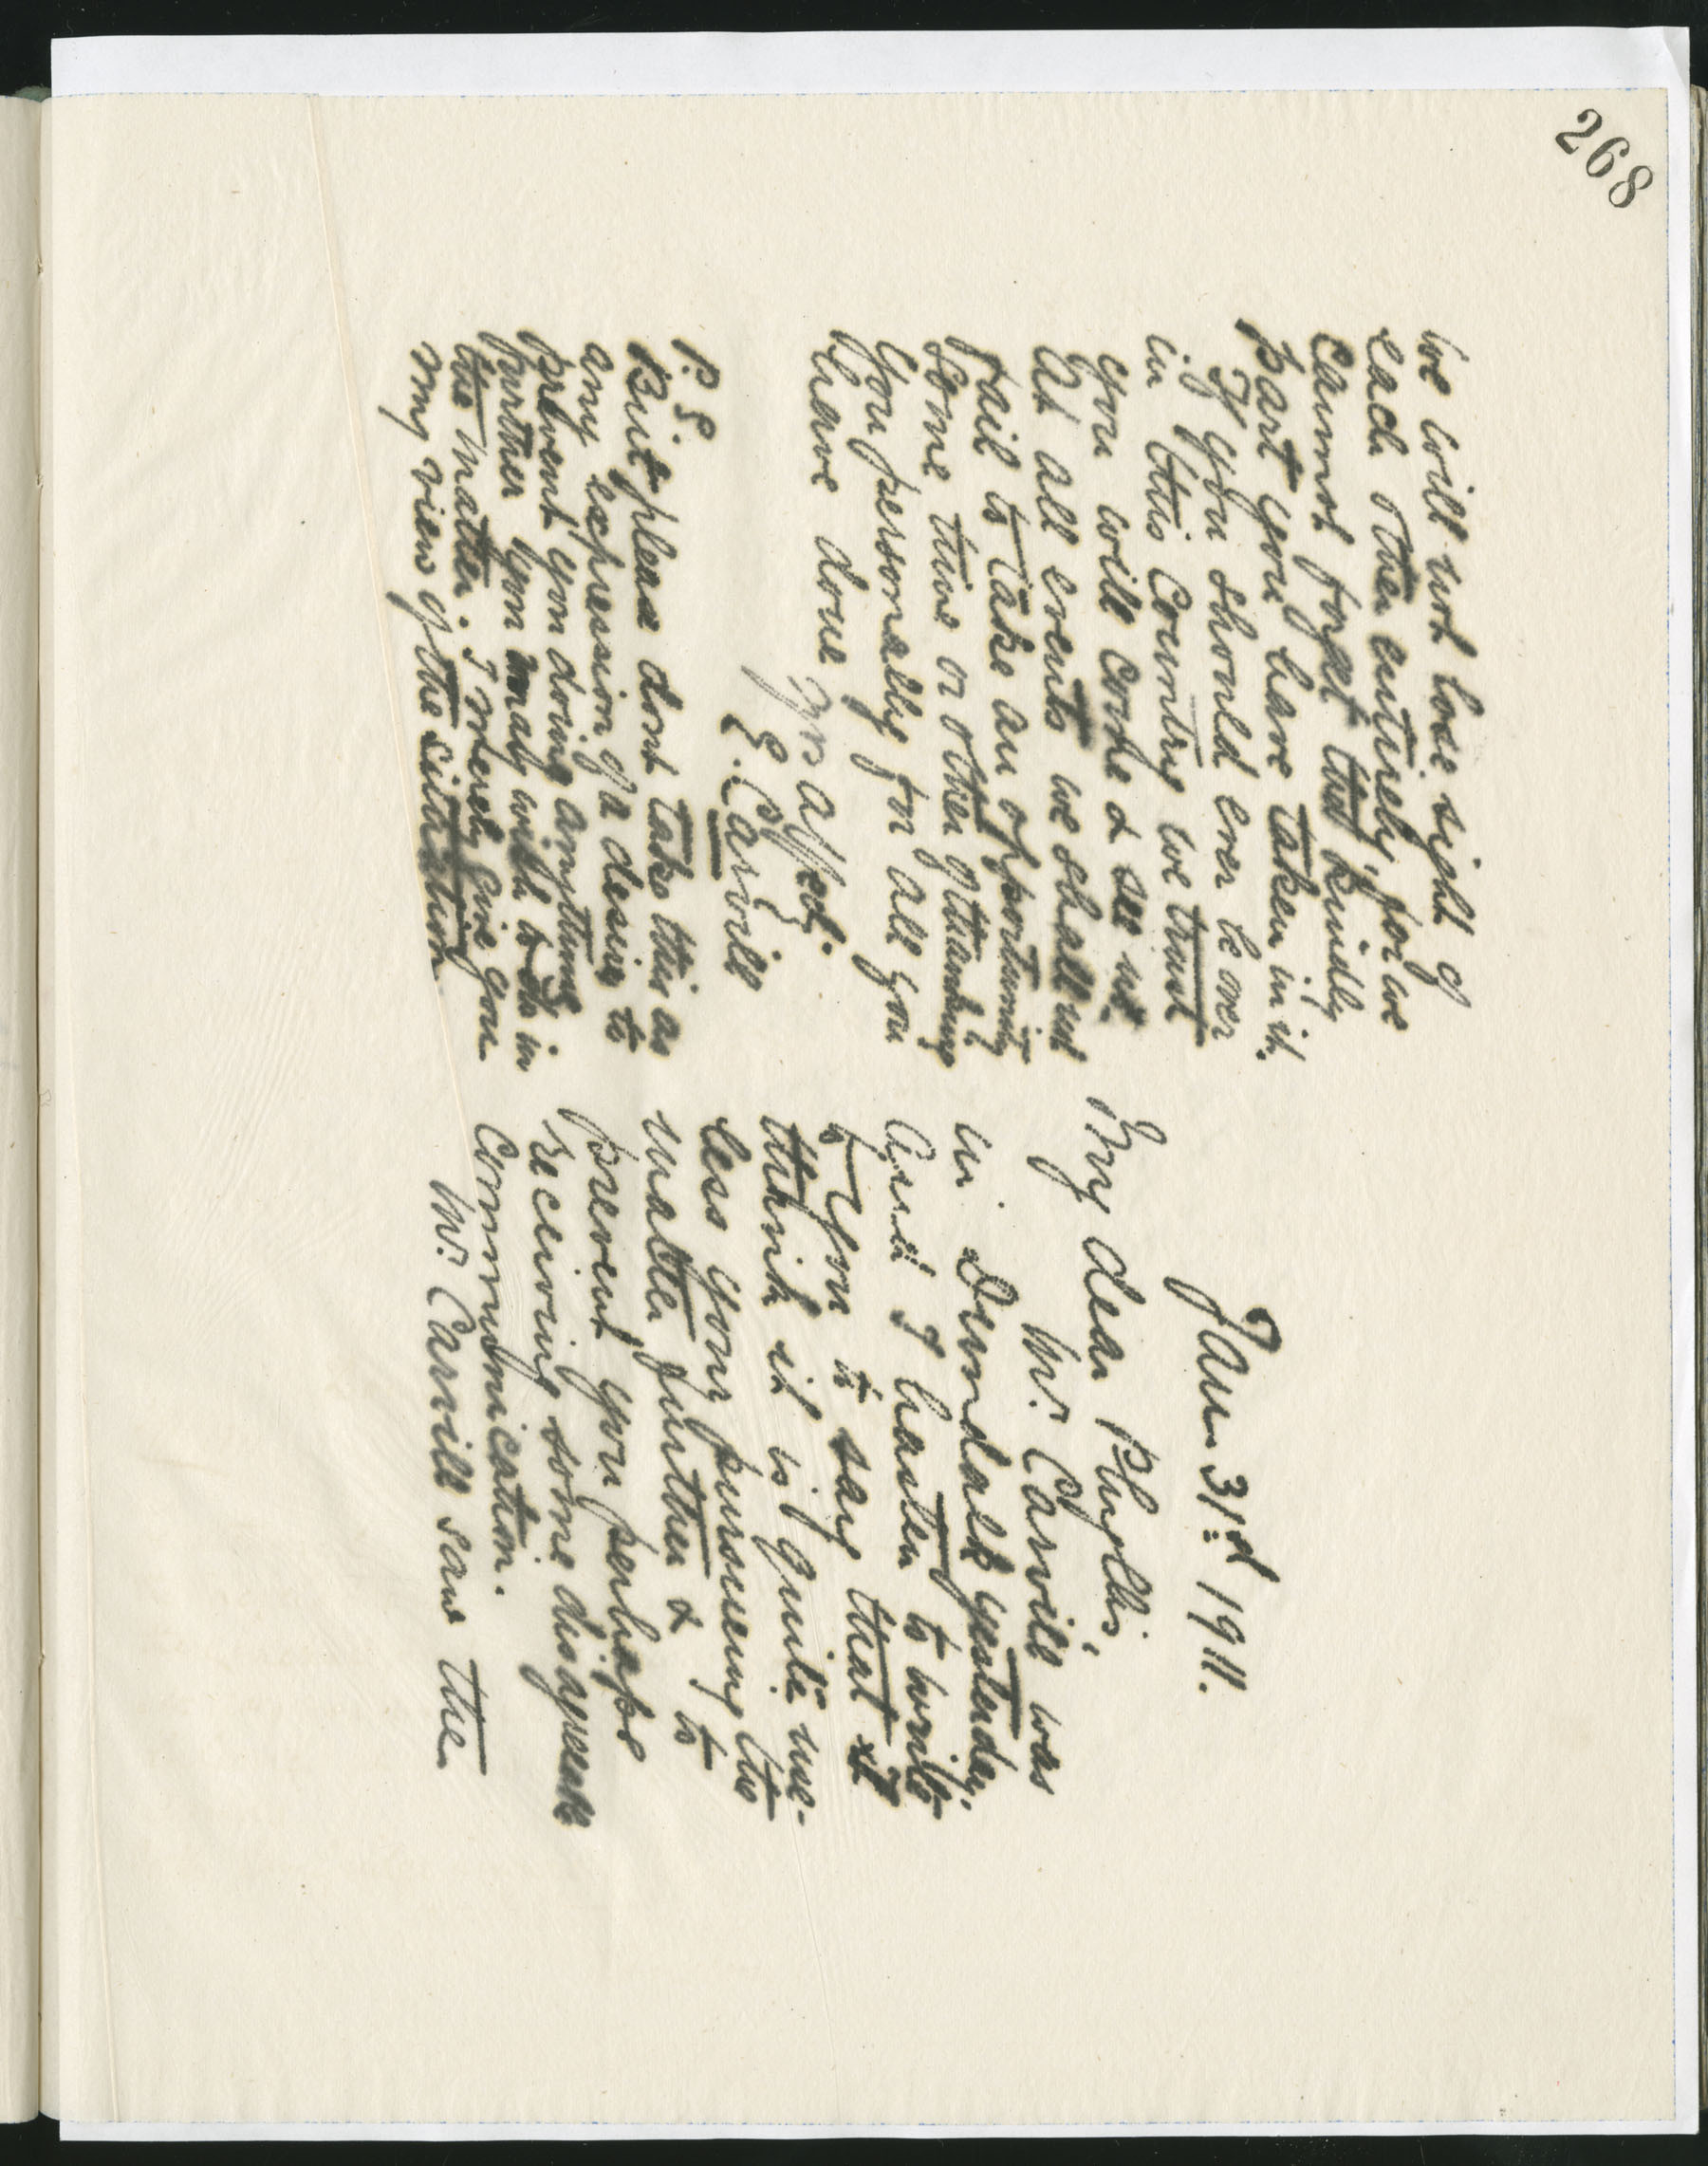 268
we will not lose sight of
each other entirely, for we
cannot forget the kindly
part you have taken in it.
If you should ever be over
in this Country we trust
you will come & see us.
At all events we shall not
fail to take an opportunity
some time or other of thanking
you personally for all you
have done
Yrs affect.
E. Carvill
P. S.
But please dont take this as
any expression of a desire to
prevent you doing anything
further you may wish to do in
the matter. I merely give you
my view of the situation
Jan 31st 1911.
My dear Phyllis,
Mr. Carvill was
in Dundalk yesterday.
and I hasten to write
to you to say that
think it is quite use-
less your pursueing the
matter further & to
prevent you perhaps
receiving some disagreeable
communication.
Mr. Carvill saw the